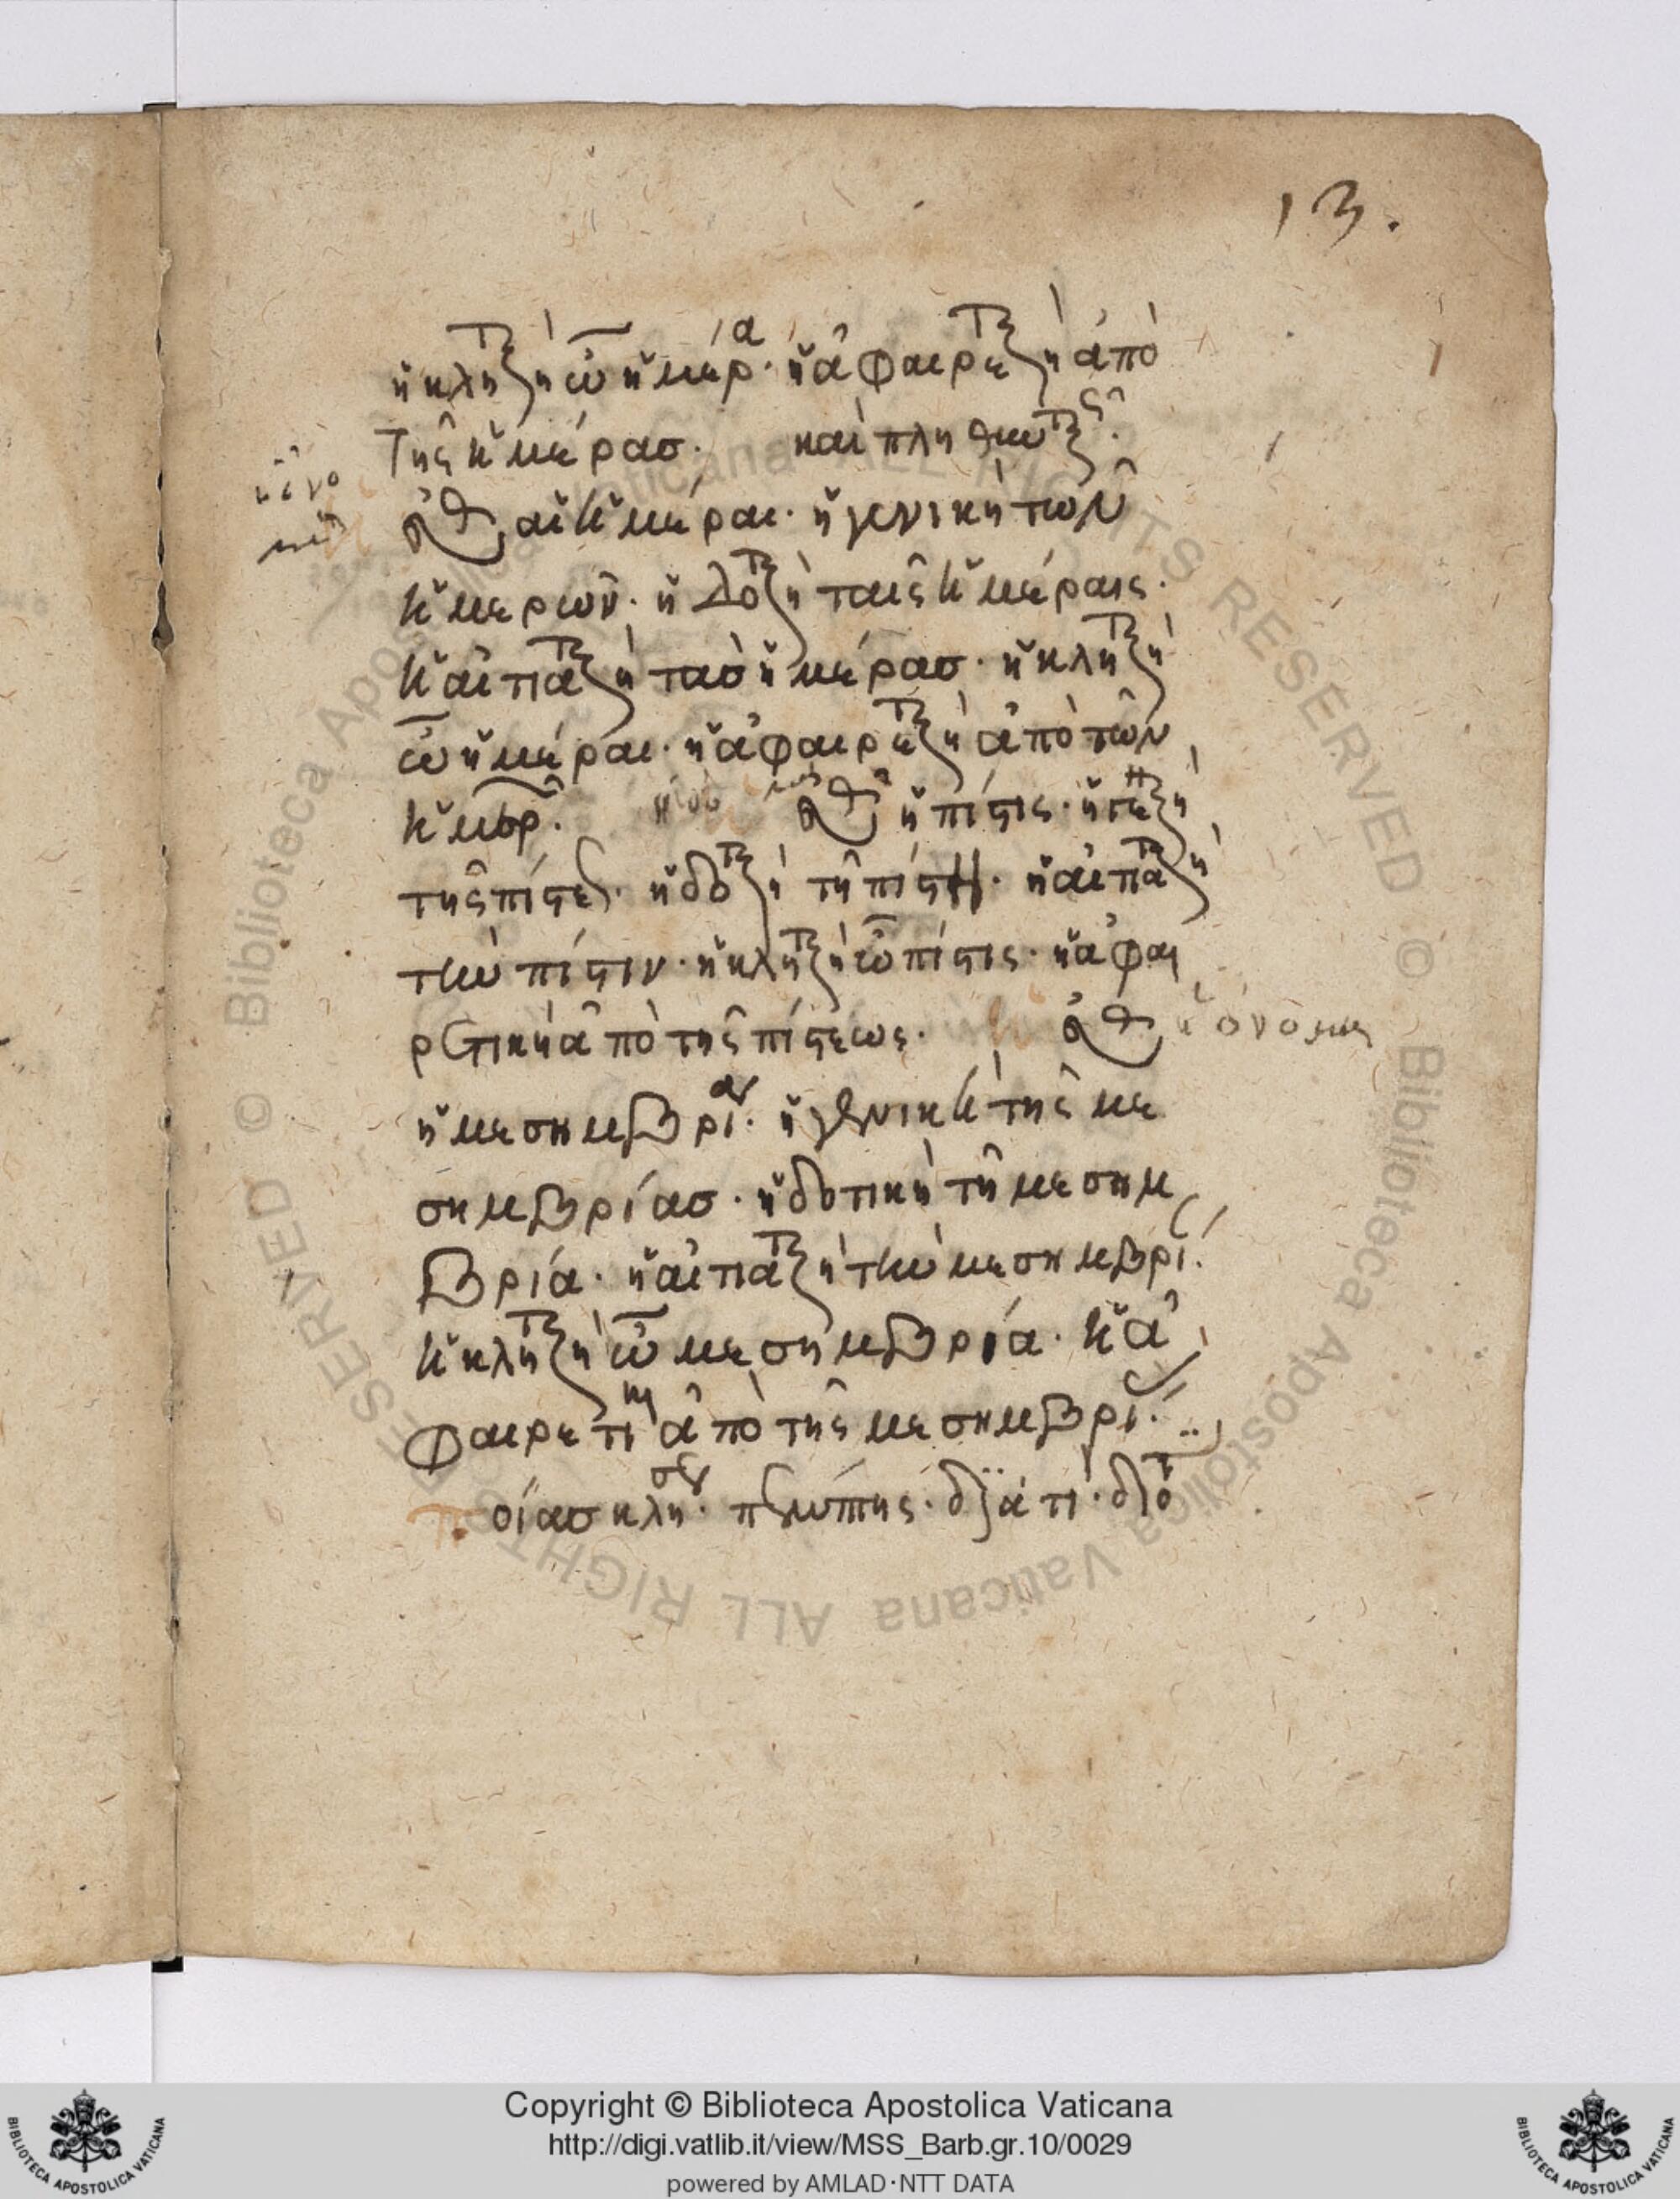 13.
ἡ κλητικὴ ὦ ἡμέρα· ἡ ἀφαιρετικὴ ἀπὸ
τῆς ἡμέρας· καὶ πληθυντικῶς·
αἱ ἡμέραι· ἡ γενικὴ τῶν
ἡμερῶν· ἡ δοτικὴ ταῖς ἡμέραις·
ἡ αἰτιατικὴ τὰς ἡμέρας· ἡ κλητικὴ
ὦ ἡμέραι· ἡ ἀφαιρετικὴ ἀπὸ τῶν
ἡμερῶν· ἡ πίστις· ἡ γενικὴ
τῆς πίστεως· ἡ δοτικὴ τῇ πίστει· ἡ αἰτιατικὴ
τὴν πίστιν· ἡ κλητικὴ ὦ πίστις· ἡ ἀφαι
ρετικὴ ἀπὸ τῆς πίστεως· ὄνομα
ἡ μεσημβρία· ἡ γενικὴ τῆς με
σημβρίας· ἡ δοτικὴ τῇ μεσημ
βρία· ἡ αἰτιατικὴ τὴν μεσημβρίαν·
ἡ κλητικὴ ὦ μεσημβρία· ἡ ἀ
φαιρετικὴ ἀπὸ τῆς μεσημβρίας·
ποίας κλίσεως· πρώτης· διατί· διότι
Copyright © Biblioteca Apostolica Vaticana
http://digi.vatlib.it/view/MSS_Barb.gr.10/0029
powered by AMLAD·NTT DATA
BIBLIOTECA APOSTOLICA VATICANA
BIBLIOTECA APOSTOLICA VATICANA
© Biblioteca Apostolica Vaticana ALL RIGHTS RESERVED © Biblioteca Apostolica Vaticana ALL RIGHTS RESERVED